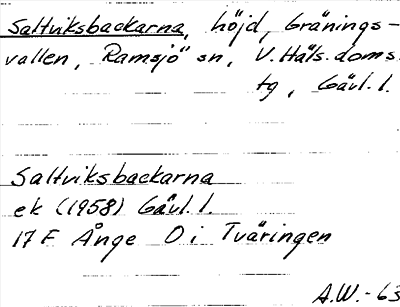 Saltviksbackarna, höjd, Gränings-
vallen, Ramsjö sn, V. Häls. doms.
tg, Gävl. l.
Saltviksbackarna
ek (1958) Gävl. l.
17 F Ånge O i Tväringen
A.W. - 63